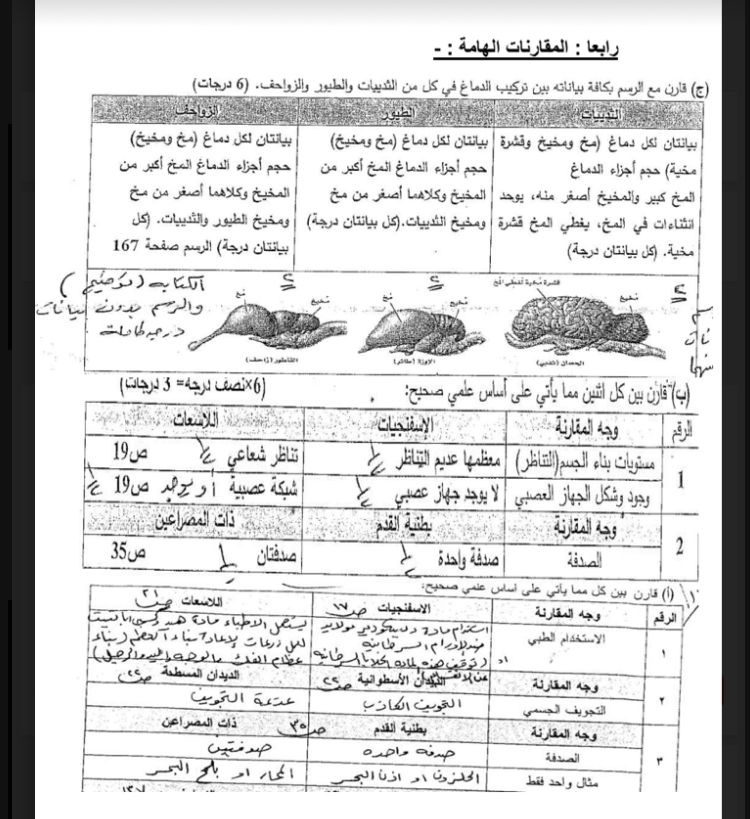 رابعا : المقارنات الهامة : -
(ج) قارن مع الرسم بكافة بياناته بين تركيب الدماغ في كل من الثدييات والطيور والزواحف. (6 درجات)
الثدييات الطيور الزواحف
بيانتان لكل دماغ (مخ ومخيخ وقشرة مخية) حجم أجزاء الدماغ
المخ كبير والمخيخ أصغر منه، يوجد
انثناءات في المخ، يغطي المخ قشرة
مخية. (كل بيانتان درجة)
بيانتان لكل دماغ (مخ ومخيخ)
حجم أجزاء الدماغ المخ أكبر من
المخيخ وكلاهما أصغر من مخ
ومخيخ الثدييات. (كل بيانتان درجة)
بيانتان لكل دماغ (مخ ومخيخ)
حجم أجزاء الدماغ المخ أكبر من
المخيخ وكلاهما أصغر من مخ
ومخيخ الطيور والثدييات. (كل
بيانتان درجة) الرسم صفحة 167
قشرة مخية تغطي المخ
مخيخ
الحصان (ثديي)
مخ
مخيخ
الإوزة (طائر)
مخ
مخيخ
(زاحف)
الكتابه (توضيح)
والرسم بدون بيانات
درجه كاملة
(ب) قارن بين كل اثنين مما يأتي على أساس علمي صحيح: (6×نصف درجة= 3 درجات)
الرقم وجه المقارنة الإسفنجيات اللاسعات
1 مستويات بناء الجسم(التناظر) معظمها عديم التناظر تناظر شعاعي ص19
وجود وشكل الجهاز العصبي لا يوجد جهاز عصبي شبكة عصبية أو يوجد ص19
2 وجه المقارنة بطنية القدم ذات المصراعين
الصدفة صدفة واحدة صدفتان ص35
(أ) قارن بين كل مما يأتي على أساس علمي صحيح:
الرقم وجه المقارنة الاسفنجيات ص١٧ اللاسعات ص٢١
١ الاستخدام الطبي
استخدام مادة
ضد الاورام السرطانية
يستعمل الاطباء مادة
عظام الفك والوجه
٢ وجه المقارنة الديدان الأسطوانية الديدان المسطحة
التجويف الجسمي التجويف الكاذب عديمة التجويف
٣ وجه المقارنة بطنية القدم ص٣٥ ذات المصراعين
الصدفة صدفه واحده صدفتين
مثال واحد فقط الحلزون او اذن البحر المحار او بلح البحر